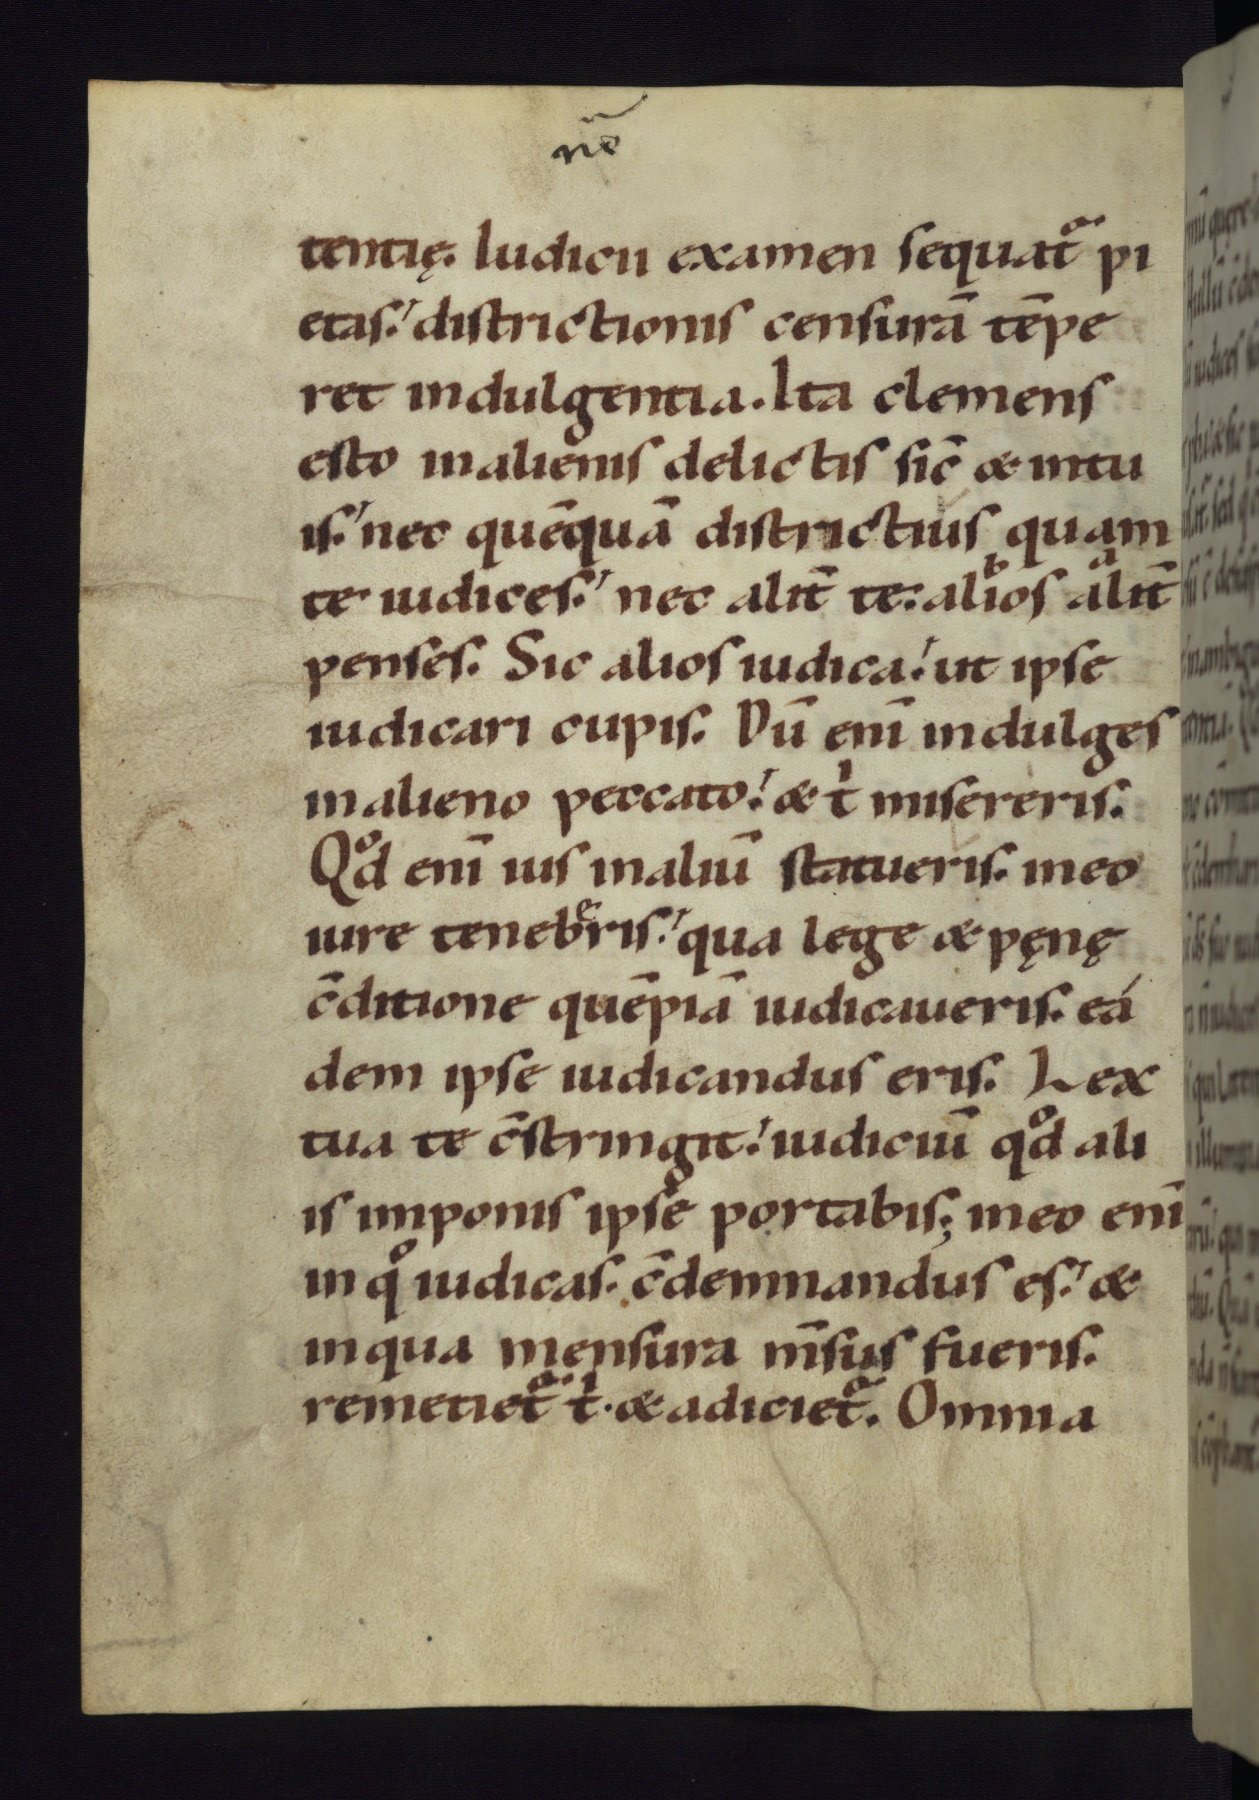 nō
tentię. Iudicii examen sequat᷑ pi
etas. districtionis censurā tēpe
ret indulgentia. Ita clemens
esto in alienis delictis sic̄ & in tu
is. nec quēquā districtius quam
te iudices. nec alit̄ te. alios alit̄
penses. Sic alios iudica. ut ipse
iudicari cupis. Dū eni̅ indulges
in alieno peccato. & tͥ misereris.
Qͦd eni̅ ius in aliū statueris. in eo
iure tenebͤris. qua lege & pęnę
c̄ditione quēpiā iudicaueris. eá
dem ipse iudicandus eris. Lex
tua te c̄stringit. iudiciū qͦd ali
is imponis ipse portabis; in eo eni̅
in qͦ iudicas. c̄demnandus es. &
in qua mensura m̄sus fueris.
remetiet᷑ tͥ. & adiciet᷑. Omnia